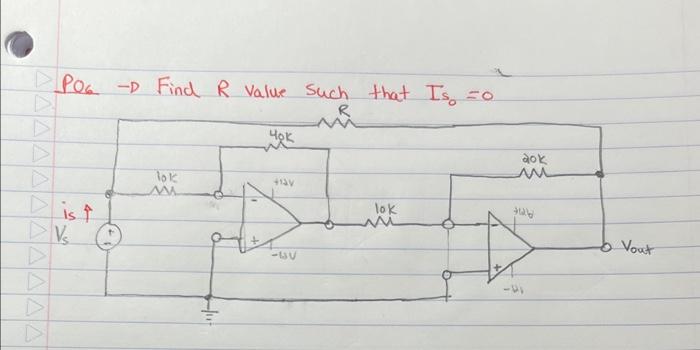 PO6 → Find R value such that Is₀ = 0
R
40K
20K
10K
+12V
10K
is ↑
Vs
+
-
-
+
-12V
-
+
Vout